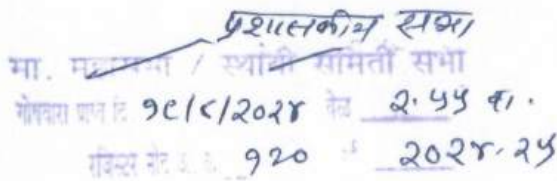 प्रशासकीय सभा
मा. महासभा / स्थायी समिती सभा
गोषवारा प्राप्त दि १९/८/२०२४ वेळ २.५५ वा.
रजिस्टर नोंद क्र. १२० २०२४-२५